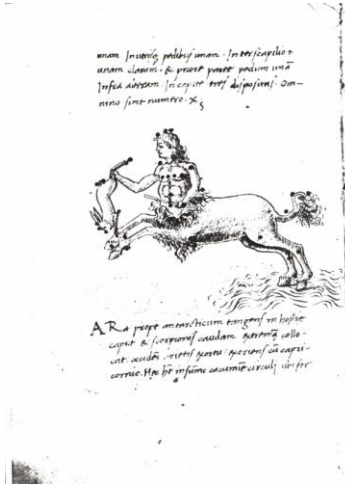 unam In utrisq; pedibus unam. In terscapilio &
unam claram. & priore parte pedum unā
Infra alteram. In capite tres dispositas. Om-
nino sint numero. X
ARa prope antarcticum tingens in hostie
caput & scorpionis caudam extremā collo-
cat. occidēs arietis exortu: exoriens cū capri-
corno. Hęc ht in sūmo cacumie circuli ubi for